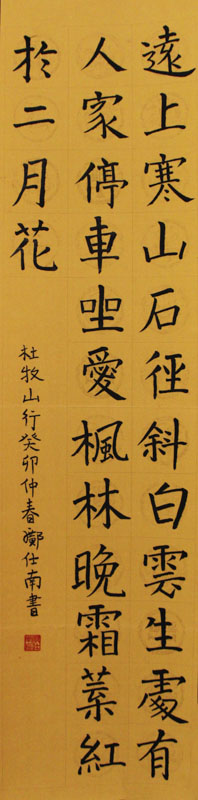 遠上寒山石徑斜白雲生處有
人家停車坐愛楓林晚霜葉紅
於二月花
杜牧山行癸卯仲春鄭仕南書